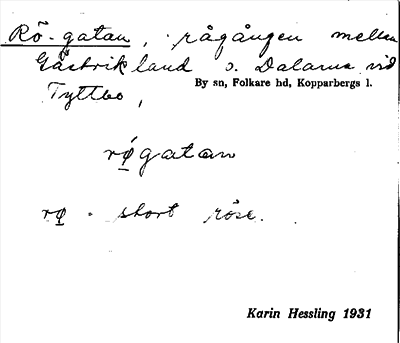 Rö-gatan, rågången mellan
Gästrikland o. Dalarna vid
By sn, Folkare hd, Kopparbergs l.
Tyttbo,
rǿgatan
rø. stort röse.
Karin Hessling 1931